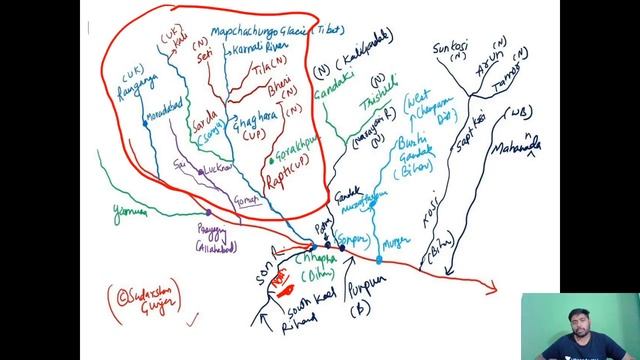 Mapchachungo Glacier (Tibet)
(UK)
Kali
(N)
Seti
Karnali River
(UK)
Ramganga
Tila (N)
Bheri
(N)
Moradabad
Sarda
Ghaghara
(UP)
Gorakhpur
Rapti (UP)
Sai
Lucknow
Gomati
Yamuna
Prayagraj
(Allahabad)
(N)
Gandaki
(N)
Trishuli
(Narayani R.)
(N)
Gandak
Muzaffarpur
(West
Champaran
Dis)
Burhi
Gandak
(Bihar)
Sunkosi
(N)
Arun
(N)
Tamor
(N)
Sapt Kosi
(WB)
Mahananda
Kosi
(Bihar)
Patna
(Sonpur)
Munger
Chhapra
(Bihar)
Son R
South Koel
Rihand
Punpun
(B)
(© Sudarshan
Gurjar)